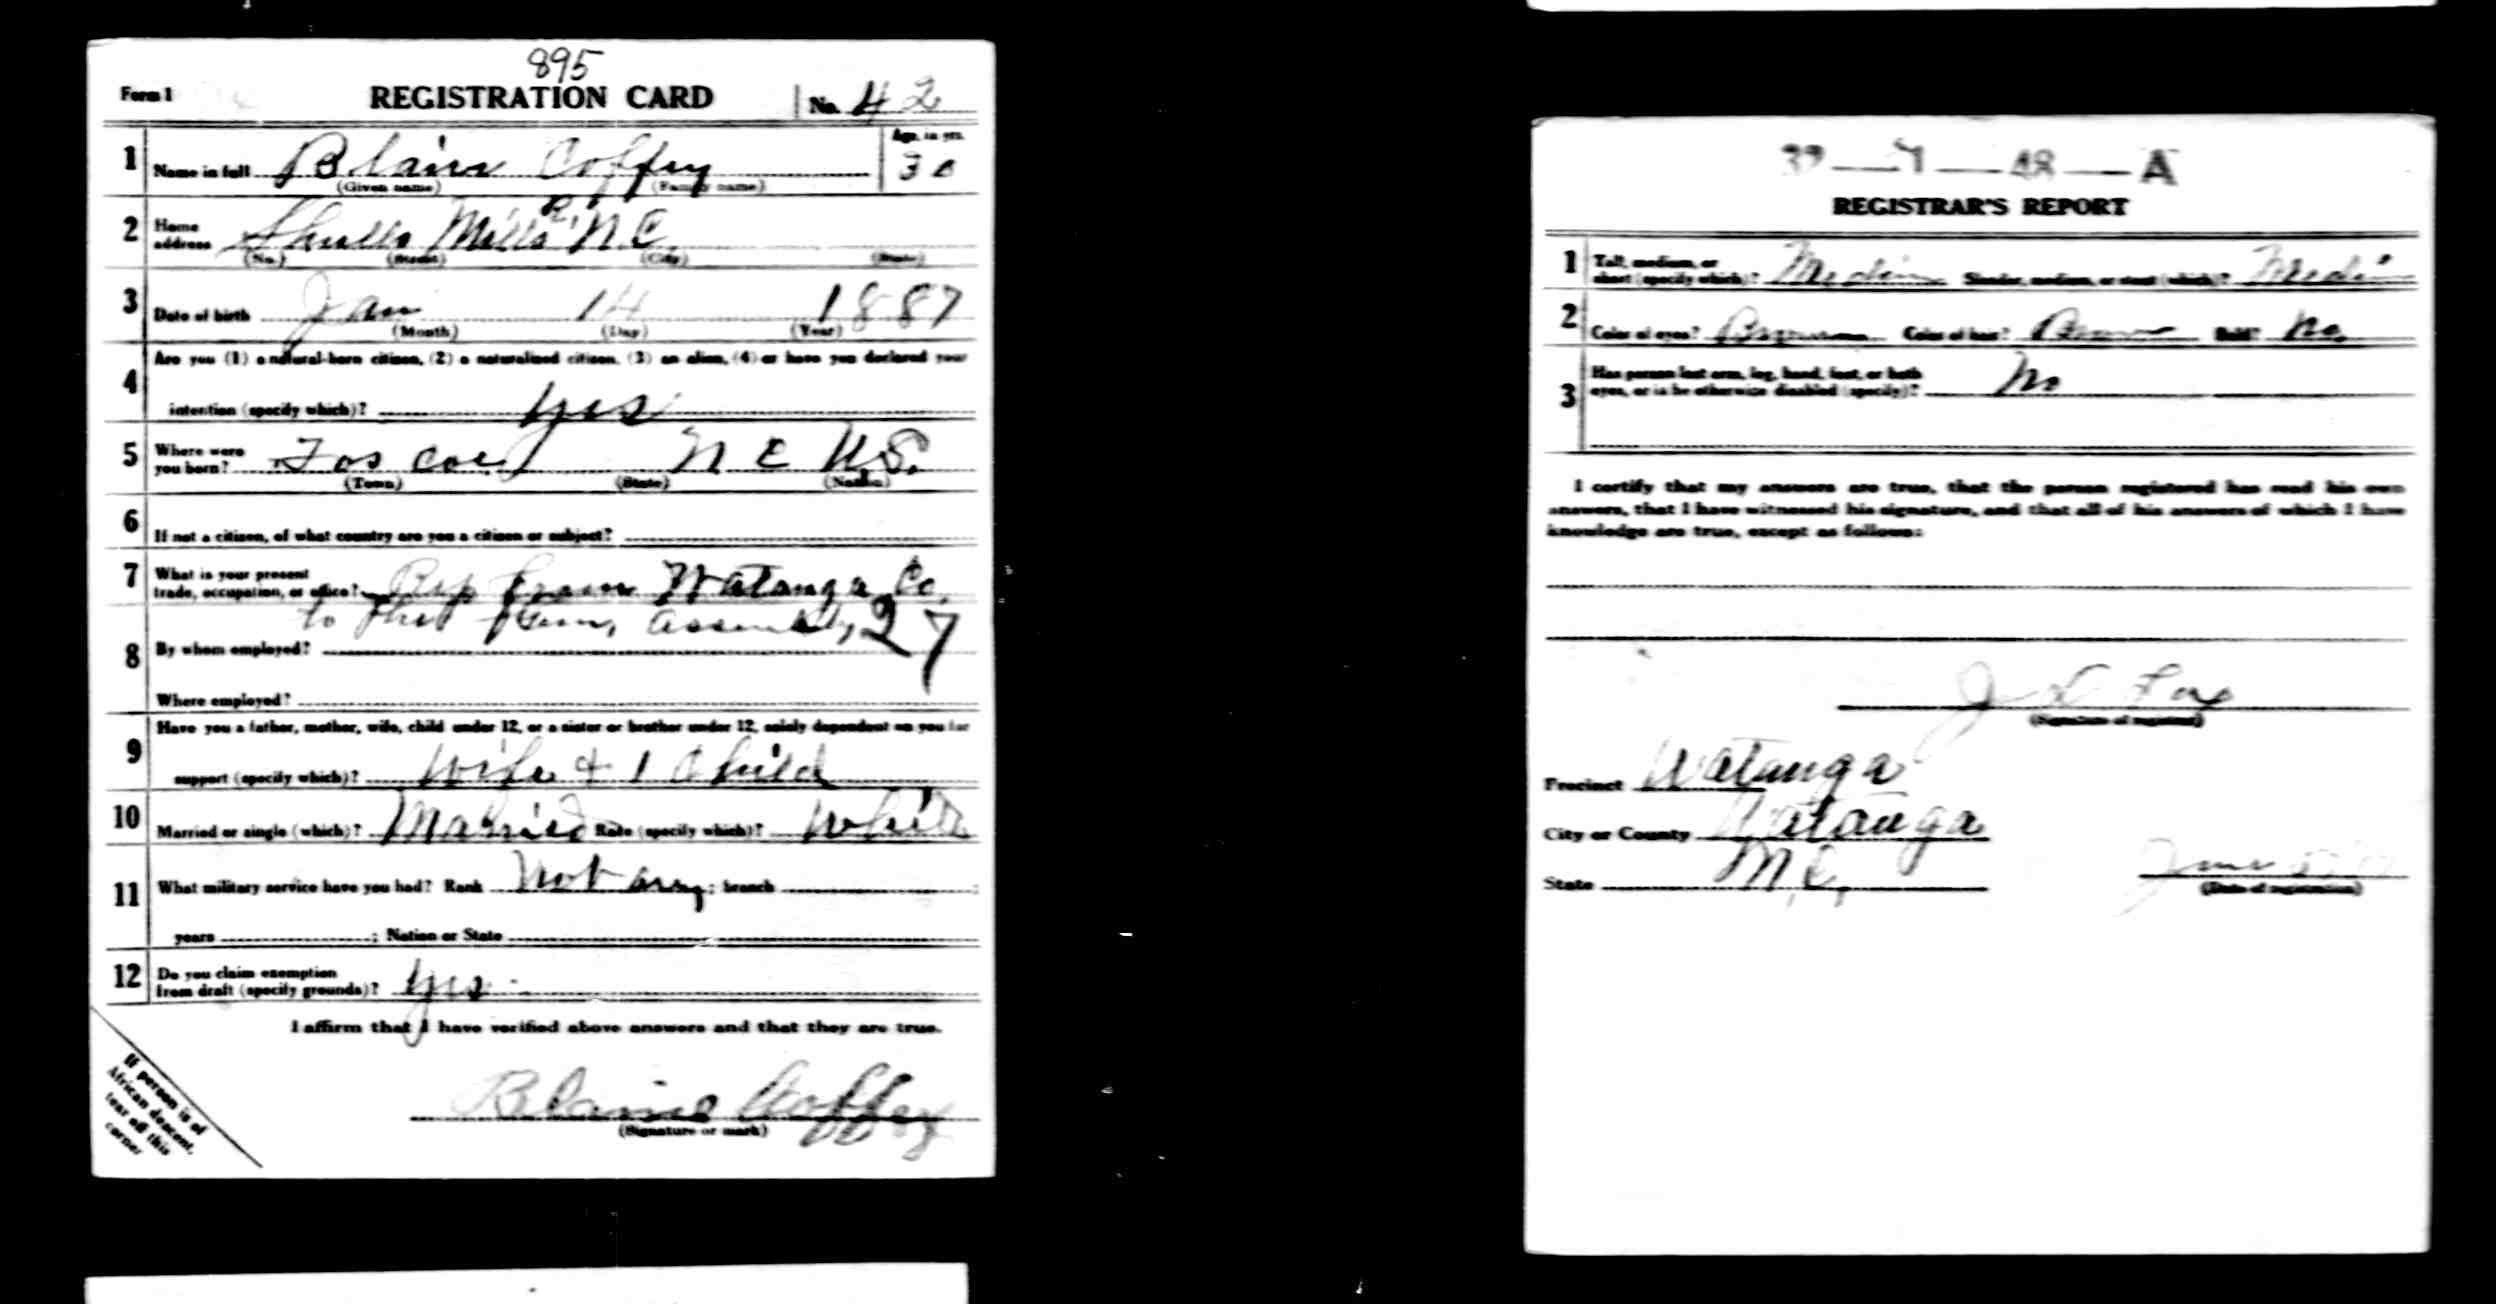 895
Form 1 REGISTRATION CARD No. 42
1 Name in full Blain Coffey Age, in yrs. 30
(Given name) (Family name)
2 Home address Shulls Mills N.C.
(No.) (Street) (City) (State)
3 Date of birth Jan 14 1887
(Month) (Day) (Year)
Are you (1) a natural-born citizen, (2) a naturalized citizen, (3) an alien, (4) or have you declared your
4 intention (specify which)? yes
5 Where were you born? Foscoe N C U.S.
(Town) (State) (Nation)
6 If not a citizen, of what country are you a citizen or subject?
7 What is your present trade, occupation, or office? Rep from Watauga Co.
to the Gen, 27
8 By whom employed?
Where employed?
Have you a father, mother, wife, child under 12, or a sister or brother under 12, solely dependent on you for
9 support (specify which)? Wife + 1 Child
10 Married or single (which)? Married Race (specify which)? White
11 What military service have you had? Rank Not any; branch ;
years ; Nation or State
12 Do you claim exemption from draft (specify grounds)? Yes
I affirm that I have verified above answers and that they are true.
Blaine Coffey
(Signature or mark)
If person is of
African descent,
tear off this
corner
A
REGISTRAR'S REPORT
1 Tall, medium, or short (specify which)? Medium Slender, medium, or stout (which)? Medi
2 Color of eyes? Brown Color of hair? Brown Bald? No
3 Has person lost arm, leg, hand, foot, or both eyes, or is he otherwise disabled (specify)? No
I certify that my answers are true, that the person registered has read his own
answers, that I have witnessed his signature, and that all of his answers of which I have
knowledge are true, except as follows:
(Signature of registrar)
Precinct Watauga
City or County Watauga
State N.C. June 5
(Date of registration)